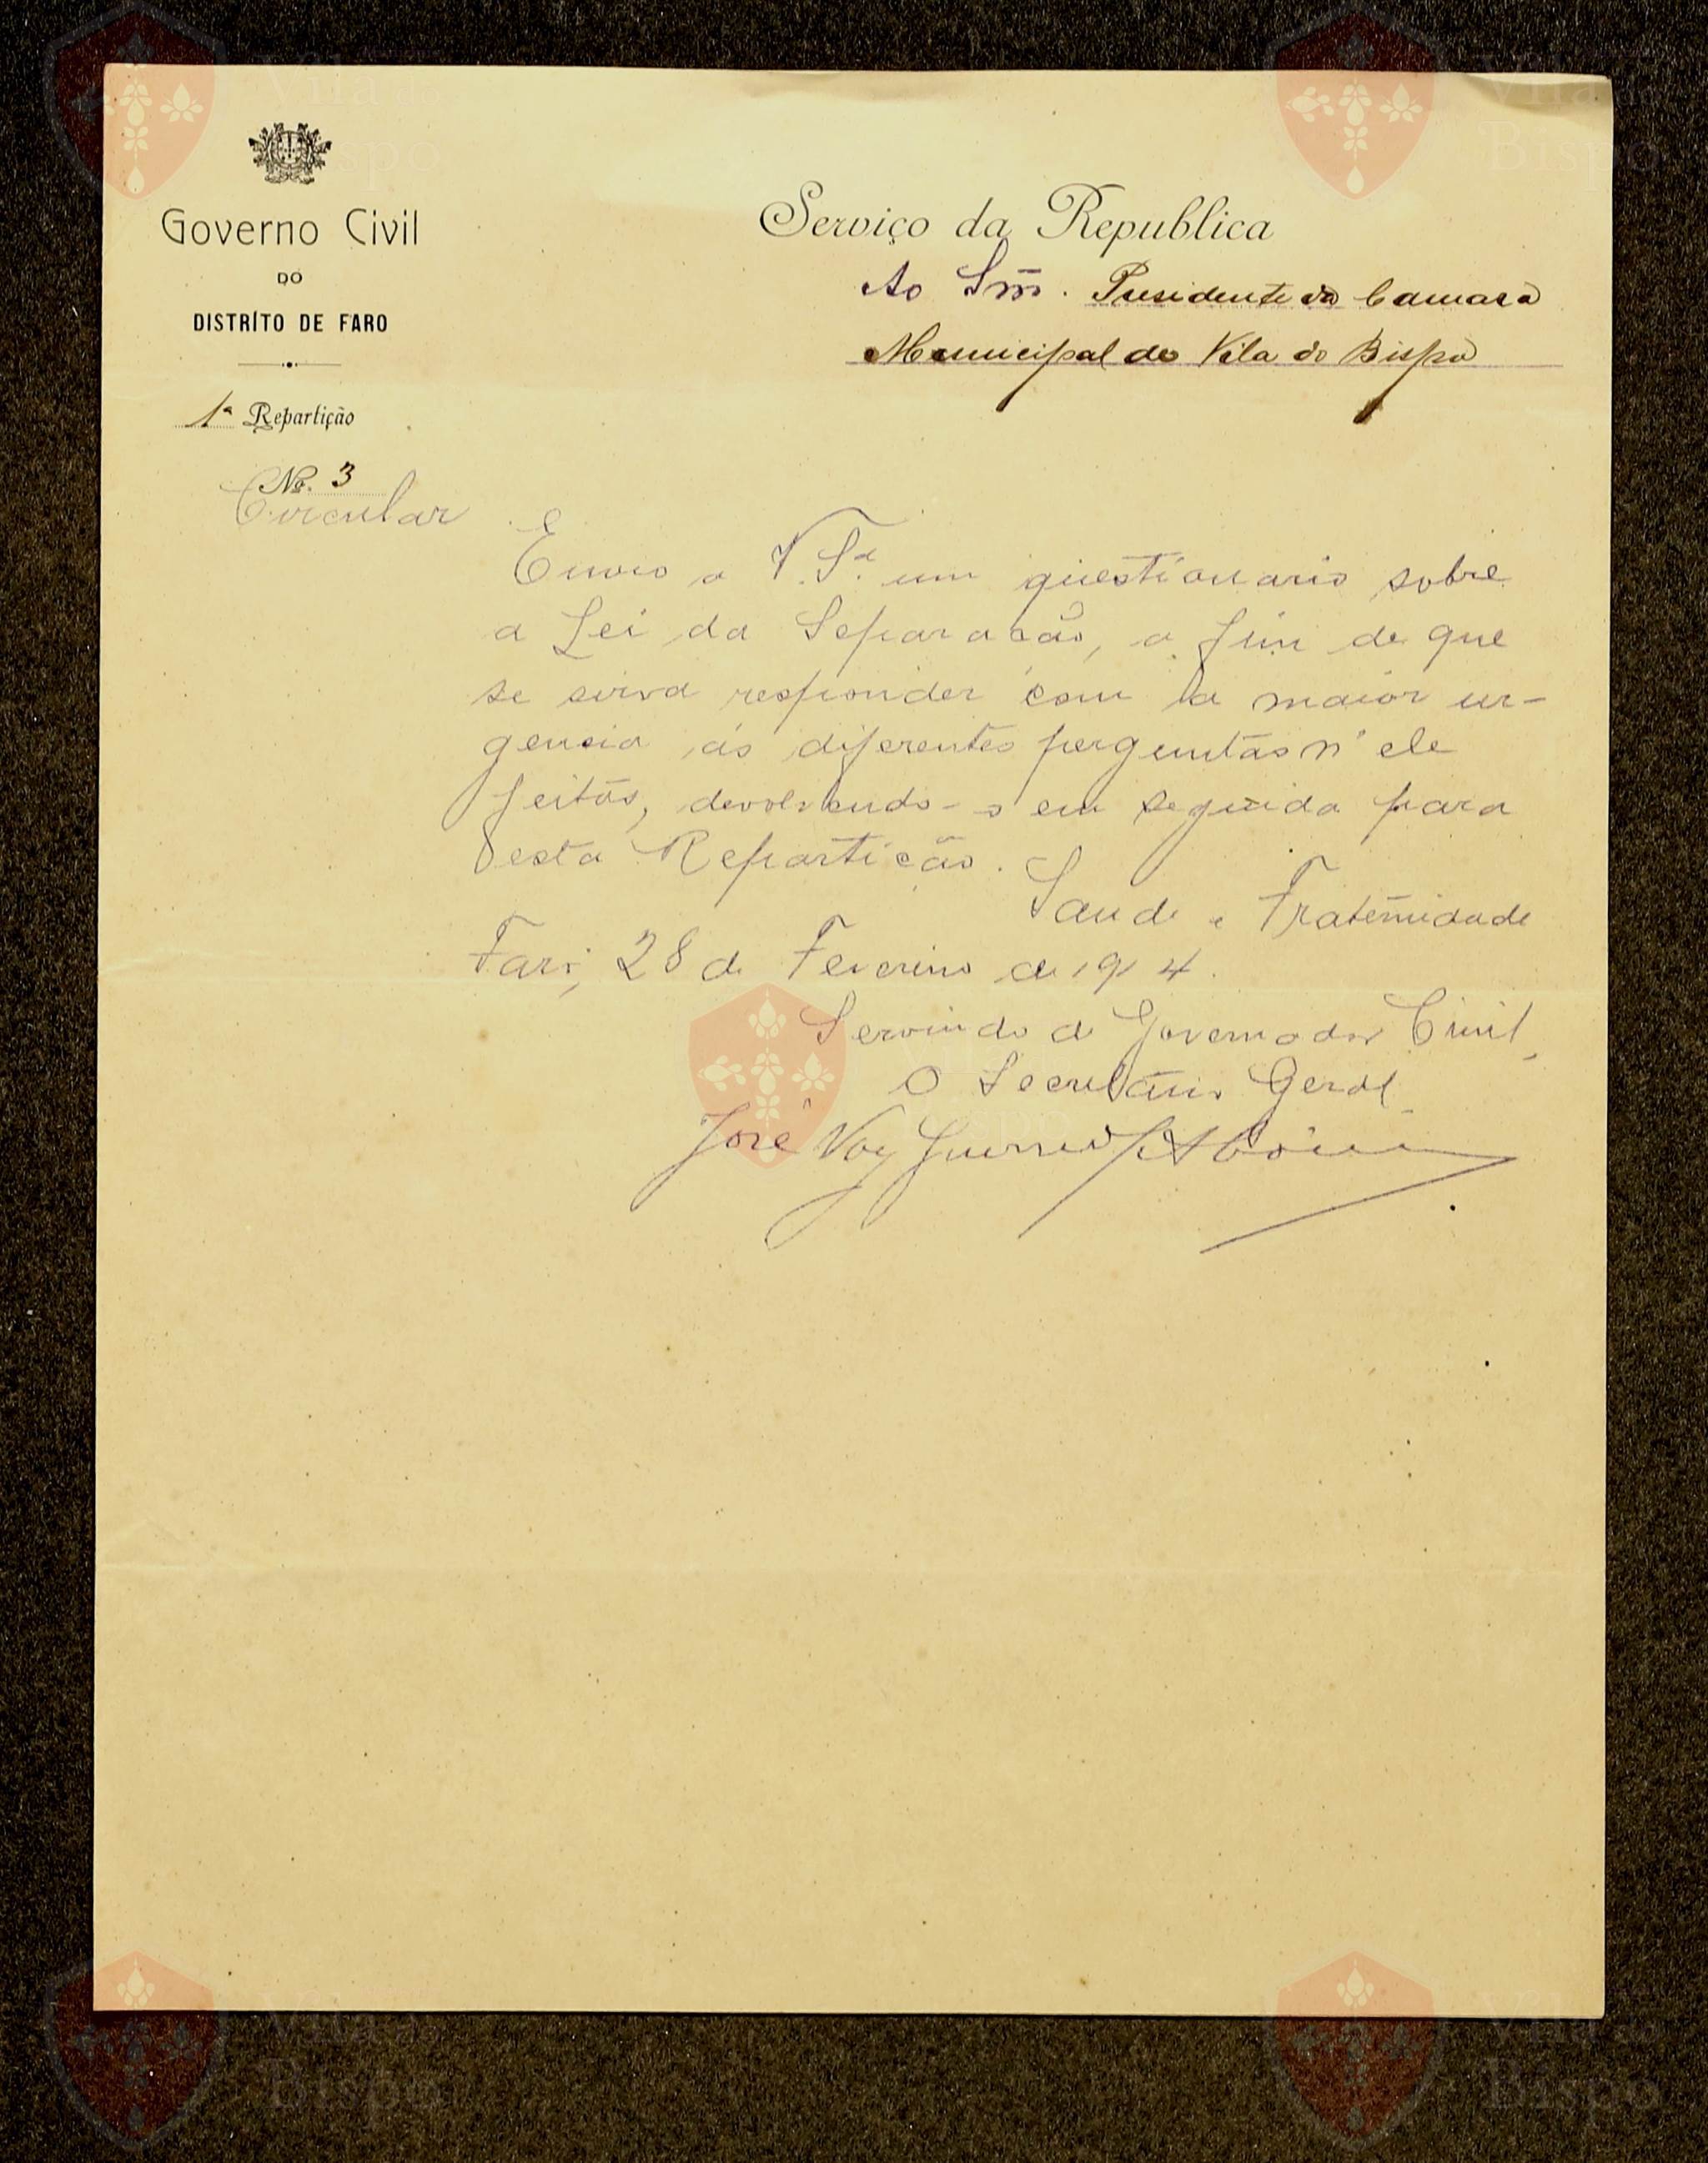 Governo Civil
DO
DISTRÍTO DE FARO
1ª Repartição
Nº. 3
Circular
Serviço da Republica
Ao Snr. Presidente da Camara
Municipal de Vila do Bispo
Envio a V. Sª. um questionario sobre
a Lei da Separação, a fim de que
se sirva responder com a maior ur-
gencia ás diferentes perguntas n'ele
feitas, devolvendo-o em seguida para
esta Repartição.
Saude e Fraternidade
Faro, 28 de Fevereiro de 1914.
Servindo de Governador Civil,
O Secretário Geral
José Vaz Guerreiro
Vila do
Bispo
Vila do
Bispo
Vila do
Bispo
Vila do
Bispo
Vila do
Bispo